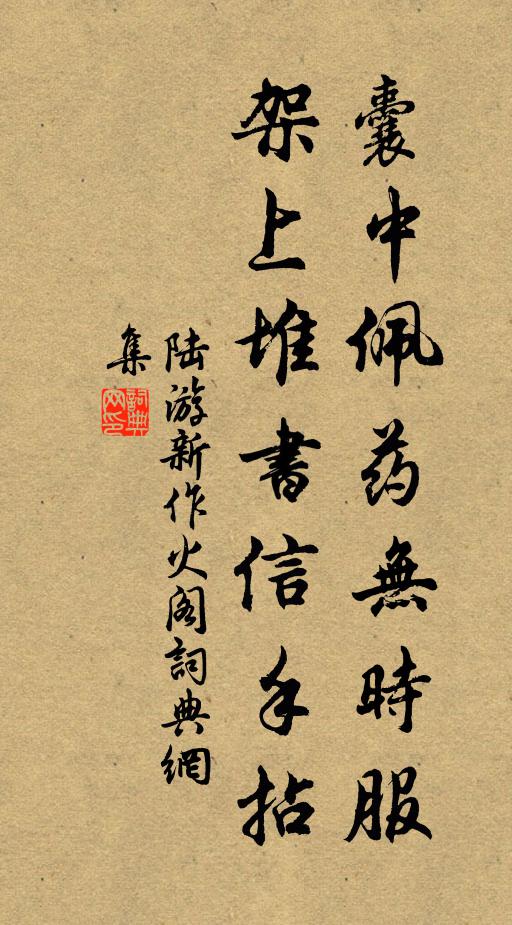 囊中佩药無時服
架上堆書信手拈
陆游新作火阁詞典網
集
詞典
网印